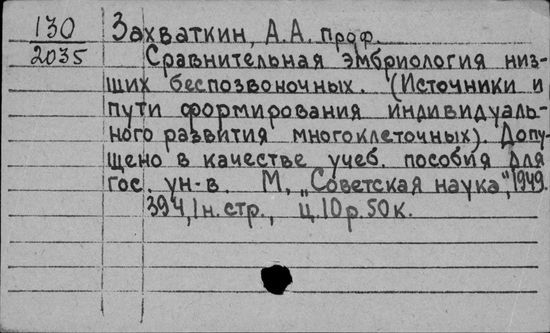 130 Захваткин, А.А. проф.
2035 Сравнительная эмбриология низ-
ших беспозвоночных. (Источники и
пути формирования индивидуаль-
ного развития многоклеточных). Допу-
щено в качестве учеб. пособия для
гос. ун-в. М, „Советская наука", 1949.
394, 1 н. стр., ц. 10 р. 50 к.